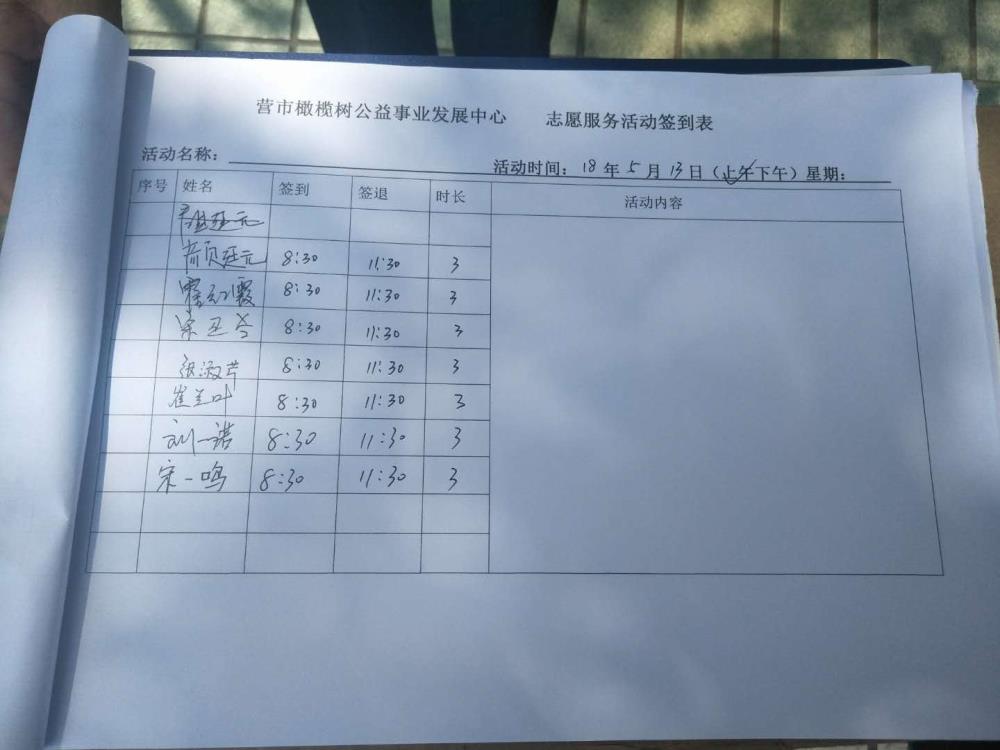 营市橄榄树公益事业发展中心 志愿服务活动签到表
活动名称： 活动时间：18年5月13日（上午下午）星期：
序号 姓名 签到 签退 时长 活动内容
8:30 11:30 3
8:30 11:30 3
8:30 11:30 3
张淑芹 8:30 11:30 3
崔兰叶 8:30 11:30 3
刘一诺 8:30 11:30 3
宋一鸣 8:30 11:30 3